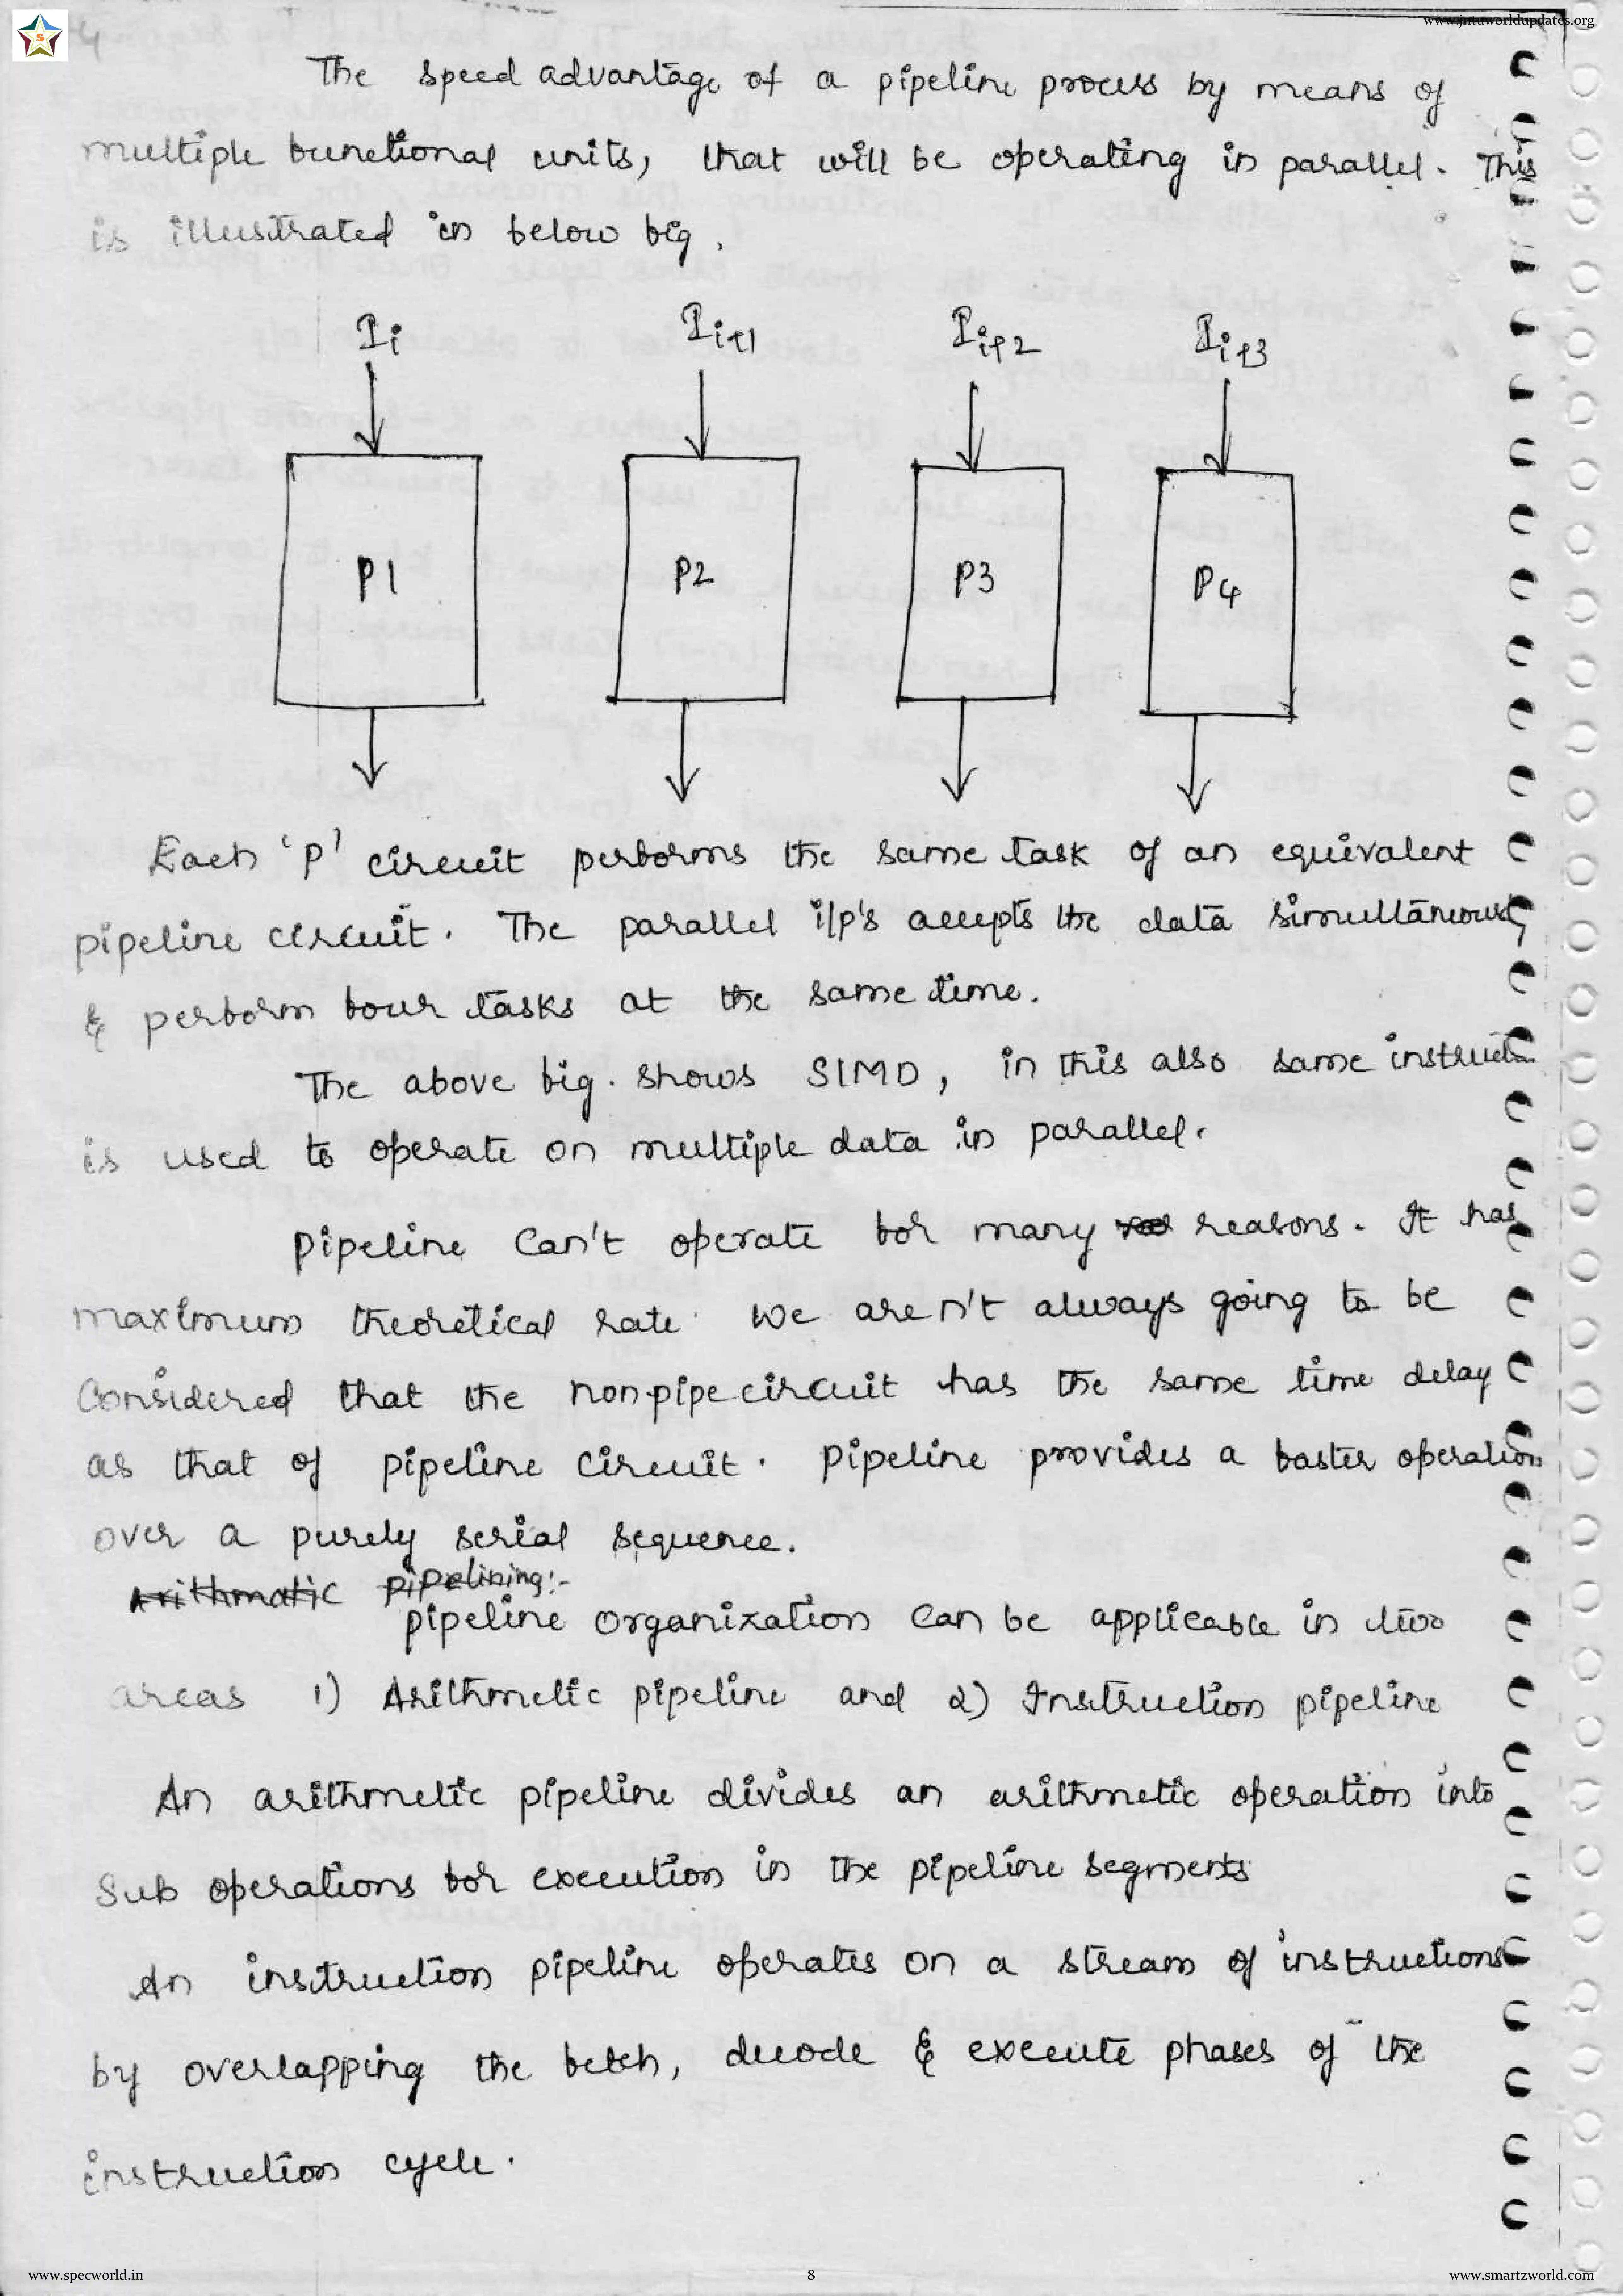 www.jntuworldupdates.org
S
The speed advantage of a pipeline process by means of
multiple functional units, that will be operating in parallel. This
is illustrated in below fig.
Ii Ii+1 Ii+2 Ii+3
P1 P2 P3 P4
Each 'P' circuit performs the same task of an equivalent
pipeline circuit. The parallel i/p's accepts the data simultaneously
& perform four tasks at the same time.
The above fig. shows SIMD, in this also same instruction
is used to operate on multiple data in parallel.
Pipeline can't operate for many reasons. It has
maximum theoretical rate. We aren't always going to be
Considered that the nonpipe circuit has the same time delay
as that of pipeline circuit. Pipeline provides a faster operation
over a purely serial sequence.
Arithmatic pipelining:-
pipeline organization can be applicable in two
areas 1) Arithmetic pipeline and 2) Instruction pipeline
An arithmetic pipeline divides an arithmetic operation into
Sub operations for execution in the pipeline segments
An instruction pipeline operates on a stream of instructions
by overlapping the fetch, decode & execute phases of the
instruction cycle.
www.specworld.in 8 www.smartzworld.com